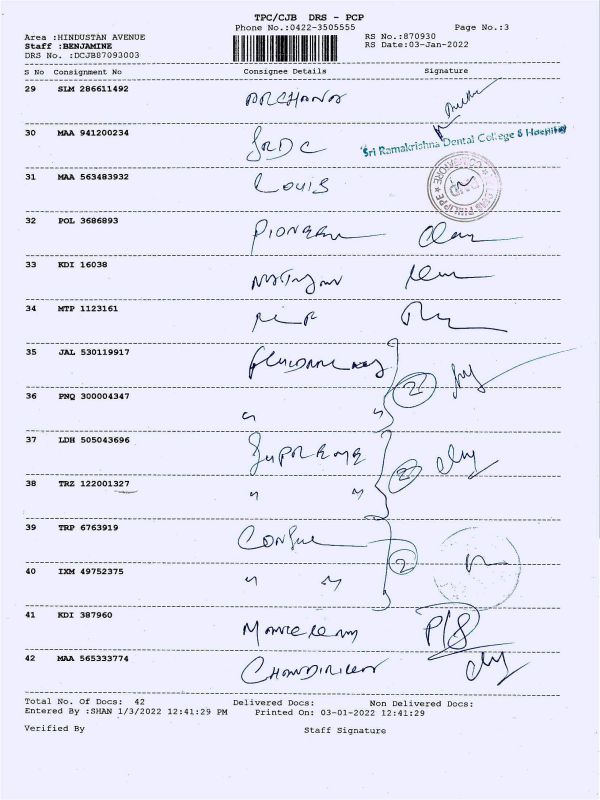 TPC/CJB DRS - PCP
Phone No.:0422-3505555 Page No.:3
Area :HINDUSTAN AVENUE RS No.:870930
Staff :BENJAMINE RS Date:03-Jan-2022
DRS No. :DCJB87093003
S No Consignment No Consignee Details Signature
29 SLM 286611492 ARCHANA
30 MAA 941200234 SRDC Sri Ramakrishna Dental College & Hospital
31 MAA 563483932 LOUIS
32 POL 3686893 PIONEER
33 KDI 16038
34 MTP 1123161
35 JAL 530119917
36 PNQ 300004347 " " 2
37 LDH 505043696 SUPREME
38 TRZ 122001327 " " 2
39 TRP 6763919
40 IXM 49752375 " " 2
41 KDI 387960
42 MAA 565333774
Total No. Of Docs: 42 Delivered Docs: Non Delivered Docs:
Entered By :SHAN 1/3/2022 12:41:29 PM Printed On: 03-01-2022 12:41:29
Verified By Staff Signature